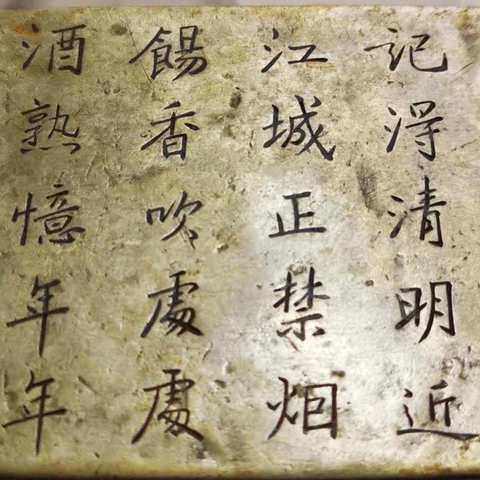 記淂清明近
江城正禁烟
餳香吹處處
酒熟憶年年